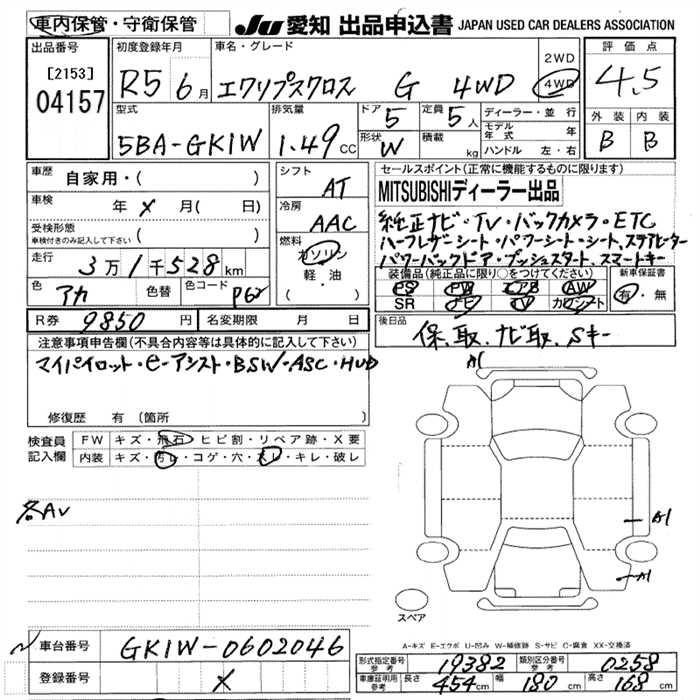 車内保管・守衛保管
JU 愛知 出品申込書 JAPAN USED CAR DEALERS ASSOCIATION
出品番号
[2153]
04157
初度登録年月
R5 6月
車名・グレード
エクリプスクロス G 4WD
2WD
4WD
評価点
4.5
外装 内装
B B
型式
5BA-GK1W
排気量
1.49 CC
ドア
5
形状
W
定員
5人
積載
kg
ディーラー・並行
モデル年式 年
ハンドル 左・右
車歴
自家用・( )
車検
年 × 月( 日)
受検形態
車検付きのみ記入して下さい ( )
走行
3万1千528km
色
アカ
色替
色コード
P62
R券 9850円
名変期限 月 日
シフト
AT
冷房
AAC
燃料
ガソリン
軽・油
セールスポイント(正常に機能するものに限ります)
MITSUBISHIディーラー出品
純正ナビ・TV・バックカメラ・ETC
ハーフレザーシート・パワーシート・シート、ステアヒーター
パワーバックドア・プッシュスタート、スマートキー
装備品(純正品に限り○をつけてください)
PS PW エアB AW
SR ナビ TV カワシート
新車保証書
有・無
後日品
保、取、ナビ取、Sキー
注意事項申告欄(不具合内容等は具体的に記入して下さい)
マイパイロット・e-アシスト・BSW・ASC・HUD
修復歴 有(箇所 )
検査員記入欄
FW キズ・飛石・ヒビ割・リペア跡・X要
内装 キズ・汚レ・コゲ・穴・スレ・キレ・破レ
各AV
A1
A1
A1
スペア
A-キズ E-エクボ U-凹み W-補修跡 S-サビ C-腐食 XX-交換済
車台番号
GK1W-0602046
登録番号
×
形式指定番号
参考
19382
類別区分番号
参考
0258
車庫証明用
参考
長さ 454cm 幅 180cm 高さ 168cm